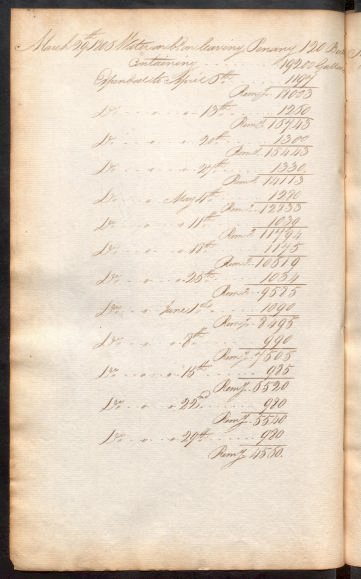 March 29th 1805 Water on b'd on leaving Penang 120 Butts
Containing . . . . . 19200 Gallons
Expended to April 6th . . . 1167
Remg. 18033
Do . . . . 13th . . . 1250
Remg. 16743
Do . . . . 20th . . . 1300
Remg. 15443
Do . . . . 27th . . . 1330
Remg. 14113
Do . . . May 4th . . . 1280
Remg. 12833
Do . . . . 11th . . . 1039
Remg. 11794
Do . . . . 18th . . . 1175
Remg. 10619
Do . . . . 25th . . . 1034
Remg. 9585
Do . . June 1st . . . 1090
Remg. 8495
Do . . . . 8th . . . 990
Remg. 7505
Do . . . . 15th . . . 985
Remg. 6520
Do . . . . 22nd . . . 980
Remg. 5540
Do . . . . 29th . . . 980
Remg. 4560.